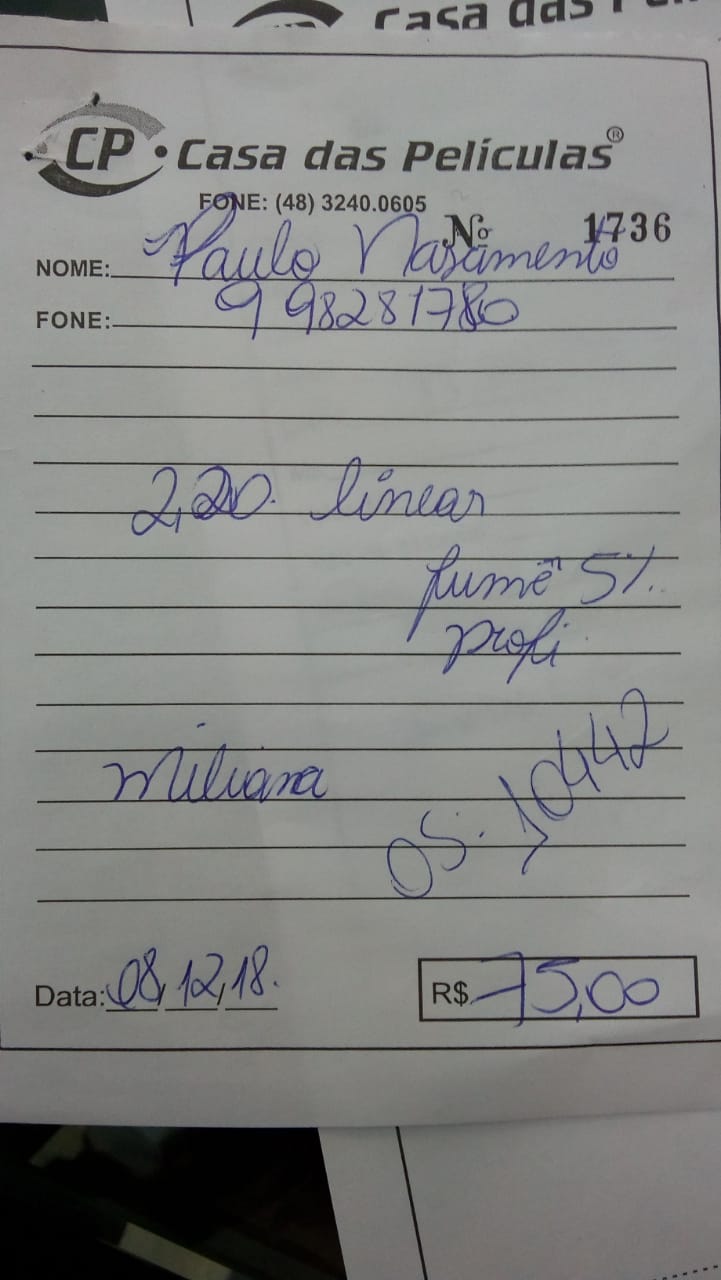 Casa das
CP • Casa das Películas®
FONE: (48) 3240.0605
Nº 1736
NOME: Paulo Nasamento
FONE: 9 98281780
2,20. linear
fumê 5%.
profi
miliana
OS. 10442
Data: 08,12,18.
R$ 75,00